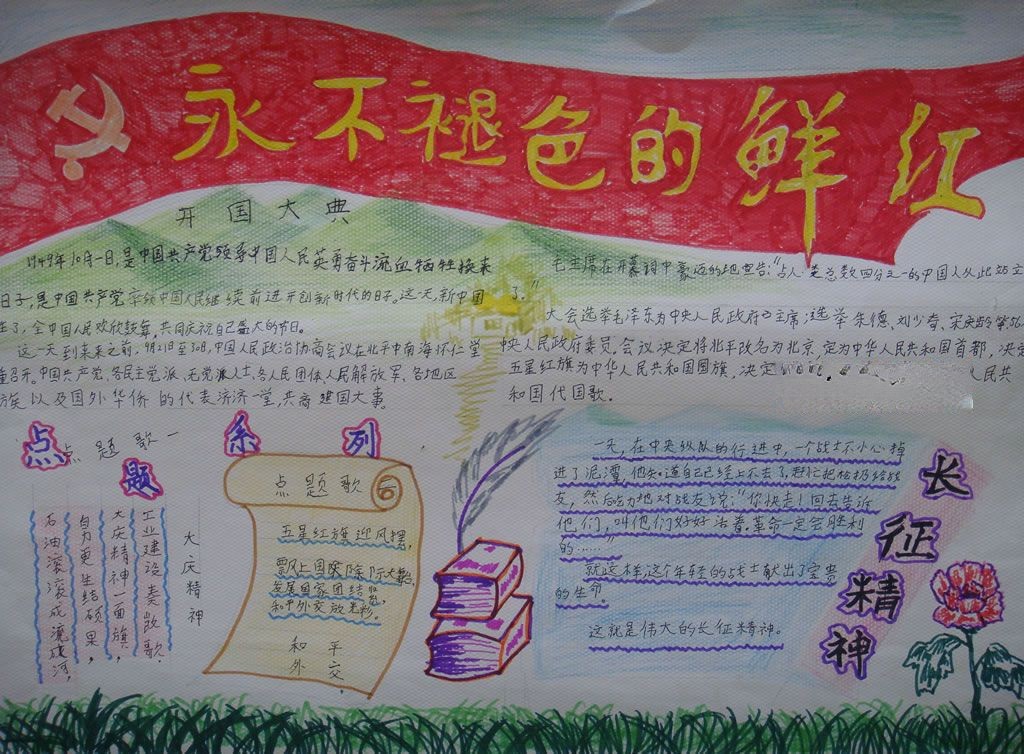 永不褪色的鲜红
开国大典
1949年10月一日,是中国共产党领导中国人民英勇奋斗流血牺牲换来
日子,是中国共产党率领中国人民继续前进开创新时代的日子。这一天,新中国
生了,全中国人民欢欣鼓舞,共同庆祝自己盛大的节日。
这一天到来之前,9月21日至30日,中国人民政治协商会议在北平中南海怀仁堂
重召开。中国共产党、各民主党派、无党派人士、各人民团体人民解放军、各地区
族以及国外华侨的代表济济一堂,共商建国大事。
毛主席在开幕词中豪迈的地宣告:"占人类总数四分之一的中国人从此站立
了。"
大会选举毛泽东为中央人民政府主席;选举朱德、刘少奇、宋庆龄等56
央人民政府委员。会议决定将北平改名为北京,定为中华人民共和国首都,决定
五星红旗为中华人民共和国国旗,决定 人民共
和国代国歌。
点题系列
点题歌一
大庆精神
工业建设奏凯歌.
大庆精神一面旗,
自力更生结硕果,
石油滚滚成流成河,
点题歌
五星红旗迎风摆,
飘上国际
发展国家团结
和平外交放光彩。
和平
外交.
一天,在中央纵队的行进中,一个战士不小心掉
进了泥潭,他知道自己已经上不去了,赶忙把枪扔给战
友,然后吃力地对战友说:"你快走!回去告诉
他们,叫他们好好活着,革命一定会胜利
的……"
就这样,这个年轻的战士献出了宝贵
的生命。
这就是伟大的长征精神。
长征精神